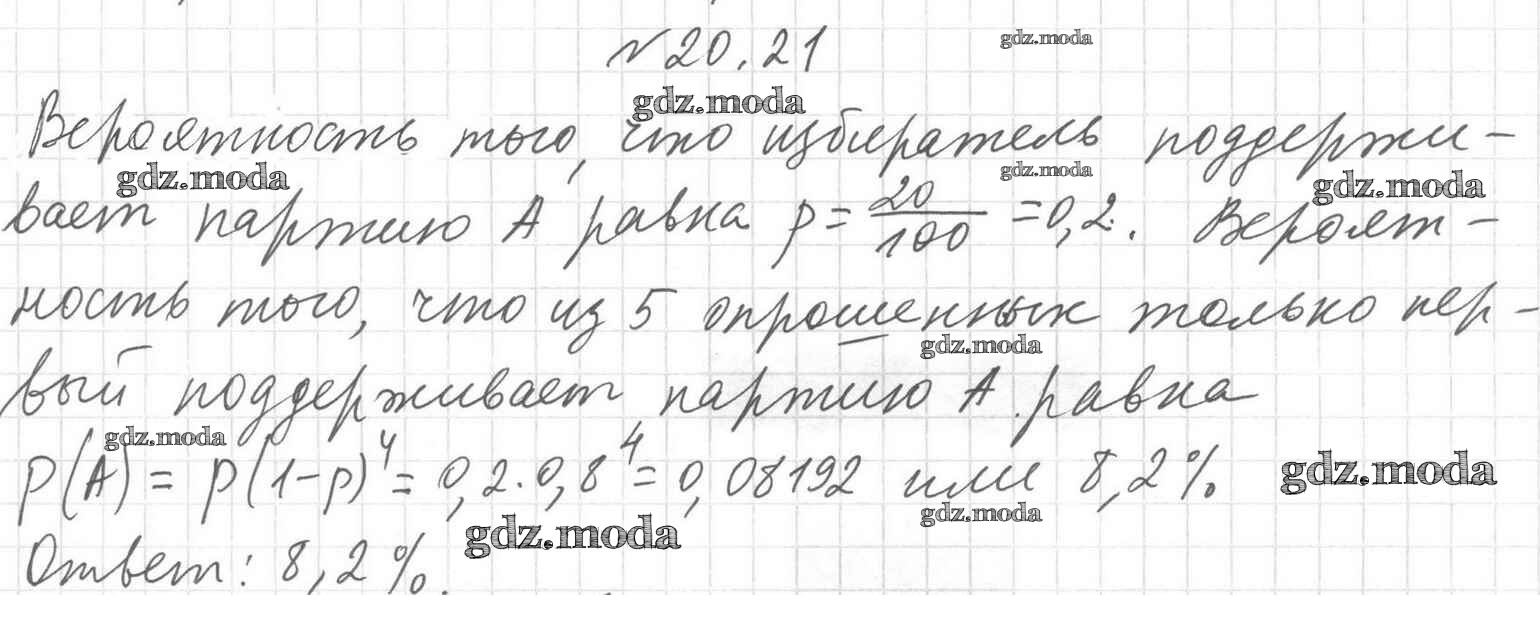 №20.21
gdz.moda
gdz.moda
Вероятность того, что избиратель поддержи-
gdz.moda
gdz.moda
gdz.moda
вает партию А равна p = 20/100 = 0,2. Вероят-
ность того, что из 5 опрошенных только пер-
gdz.moda
вый поддерживает партию А равна
gdz.moda
P(A) = p(1-p)⁴ = 0,2·0,8⁴ = 0,08192 или 8,2%
gdz.moda
gdz.moda
gdz.moda
Ответ: 8,2%.